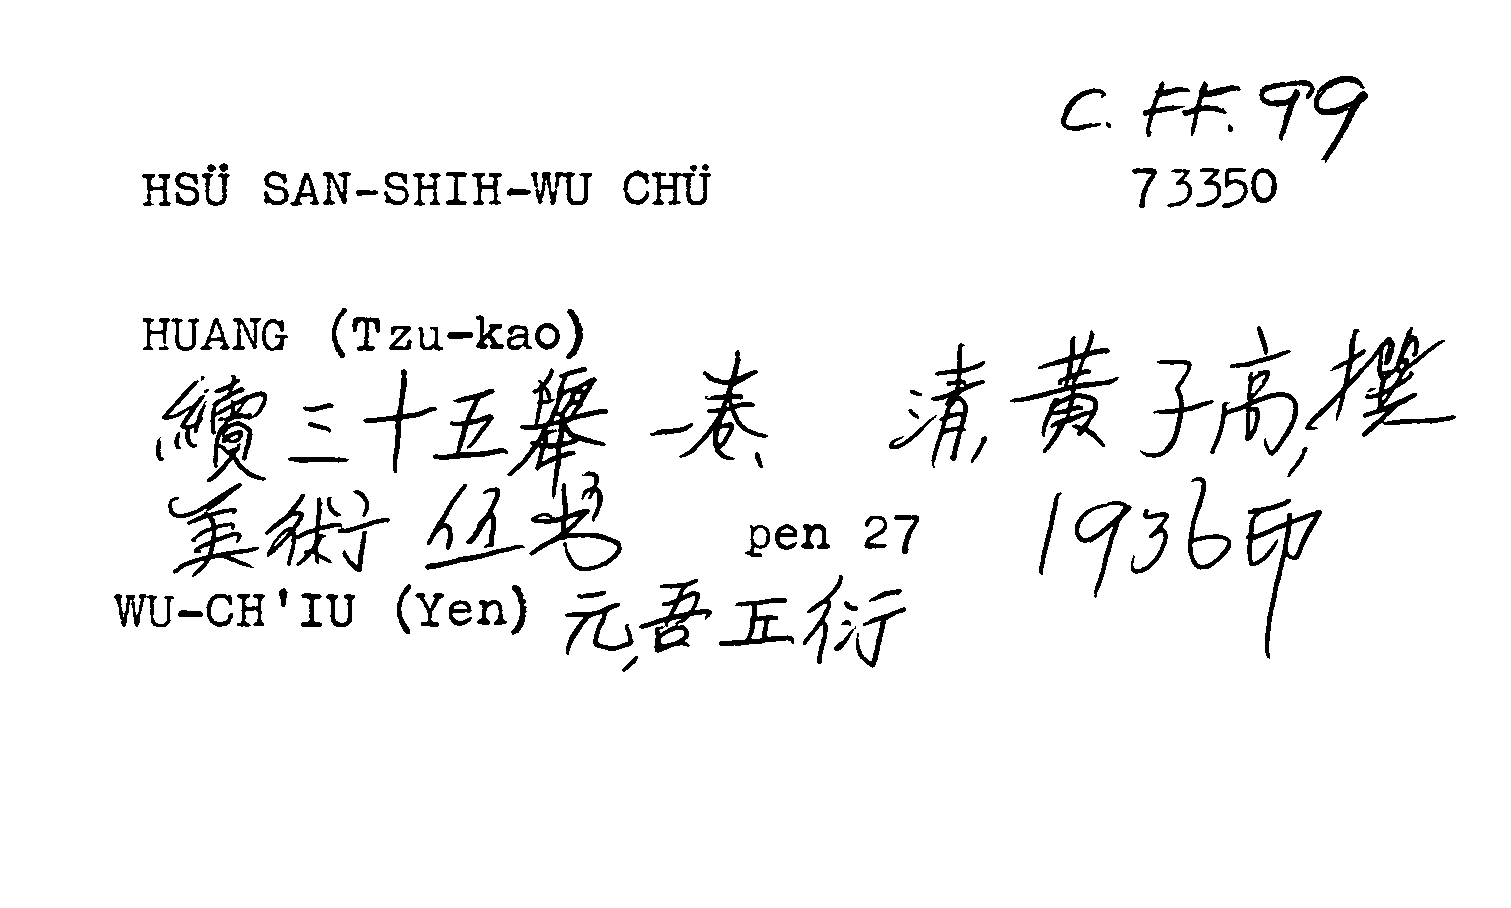 C. FF. 99
HSÜ SAN-SHIH-WU CHÜ 73350
HUANG (Tzu-kao)
續三十五舉 一卷、 清,黃子高,撰
美術丛书 pen 27 1936印
WU-CH'IU (Yen) 元,吾丘衍